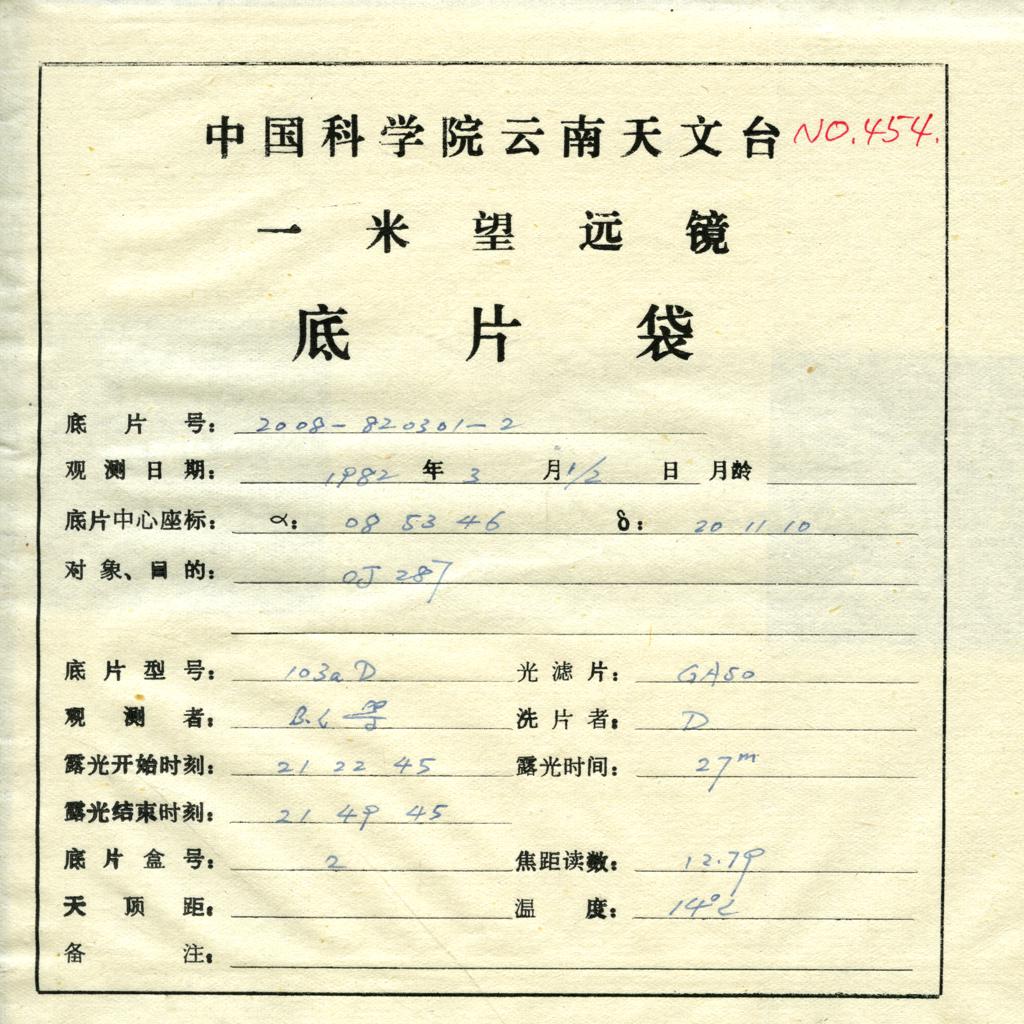 中国科学院云南天文台 NO.454.
一米望远镜
底片袋
底片号: 2008-820301-2
观测日期: 1982 年 3 月 1/2 日 月龄
底片中心座标: α: 08 53 46 δ: 20 11 10
对象、目的: OJ 287
底片型号: 103a D 光滤片: GA50
观测者: 洗片者: D
露光开始时刻: 21 22 45 露光时间: 27m
露光结束时刻: 21 49 45
底片盒号: 2 焦距读数: 12.79
天顶距: 温度: 14°C
备注: